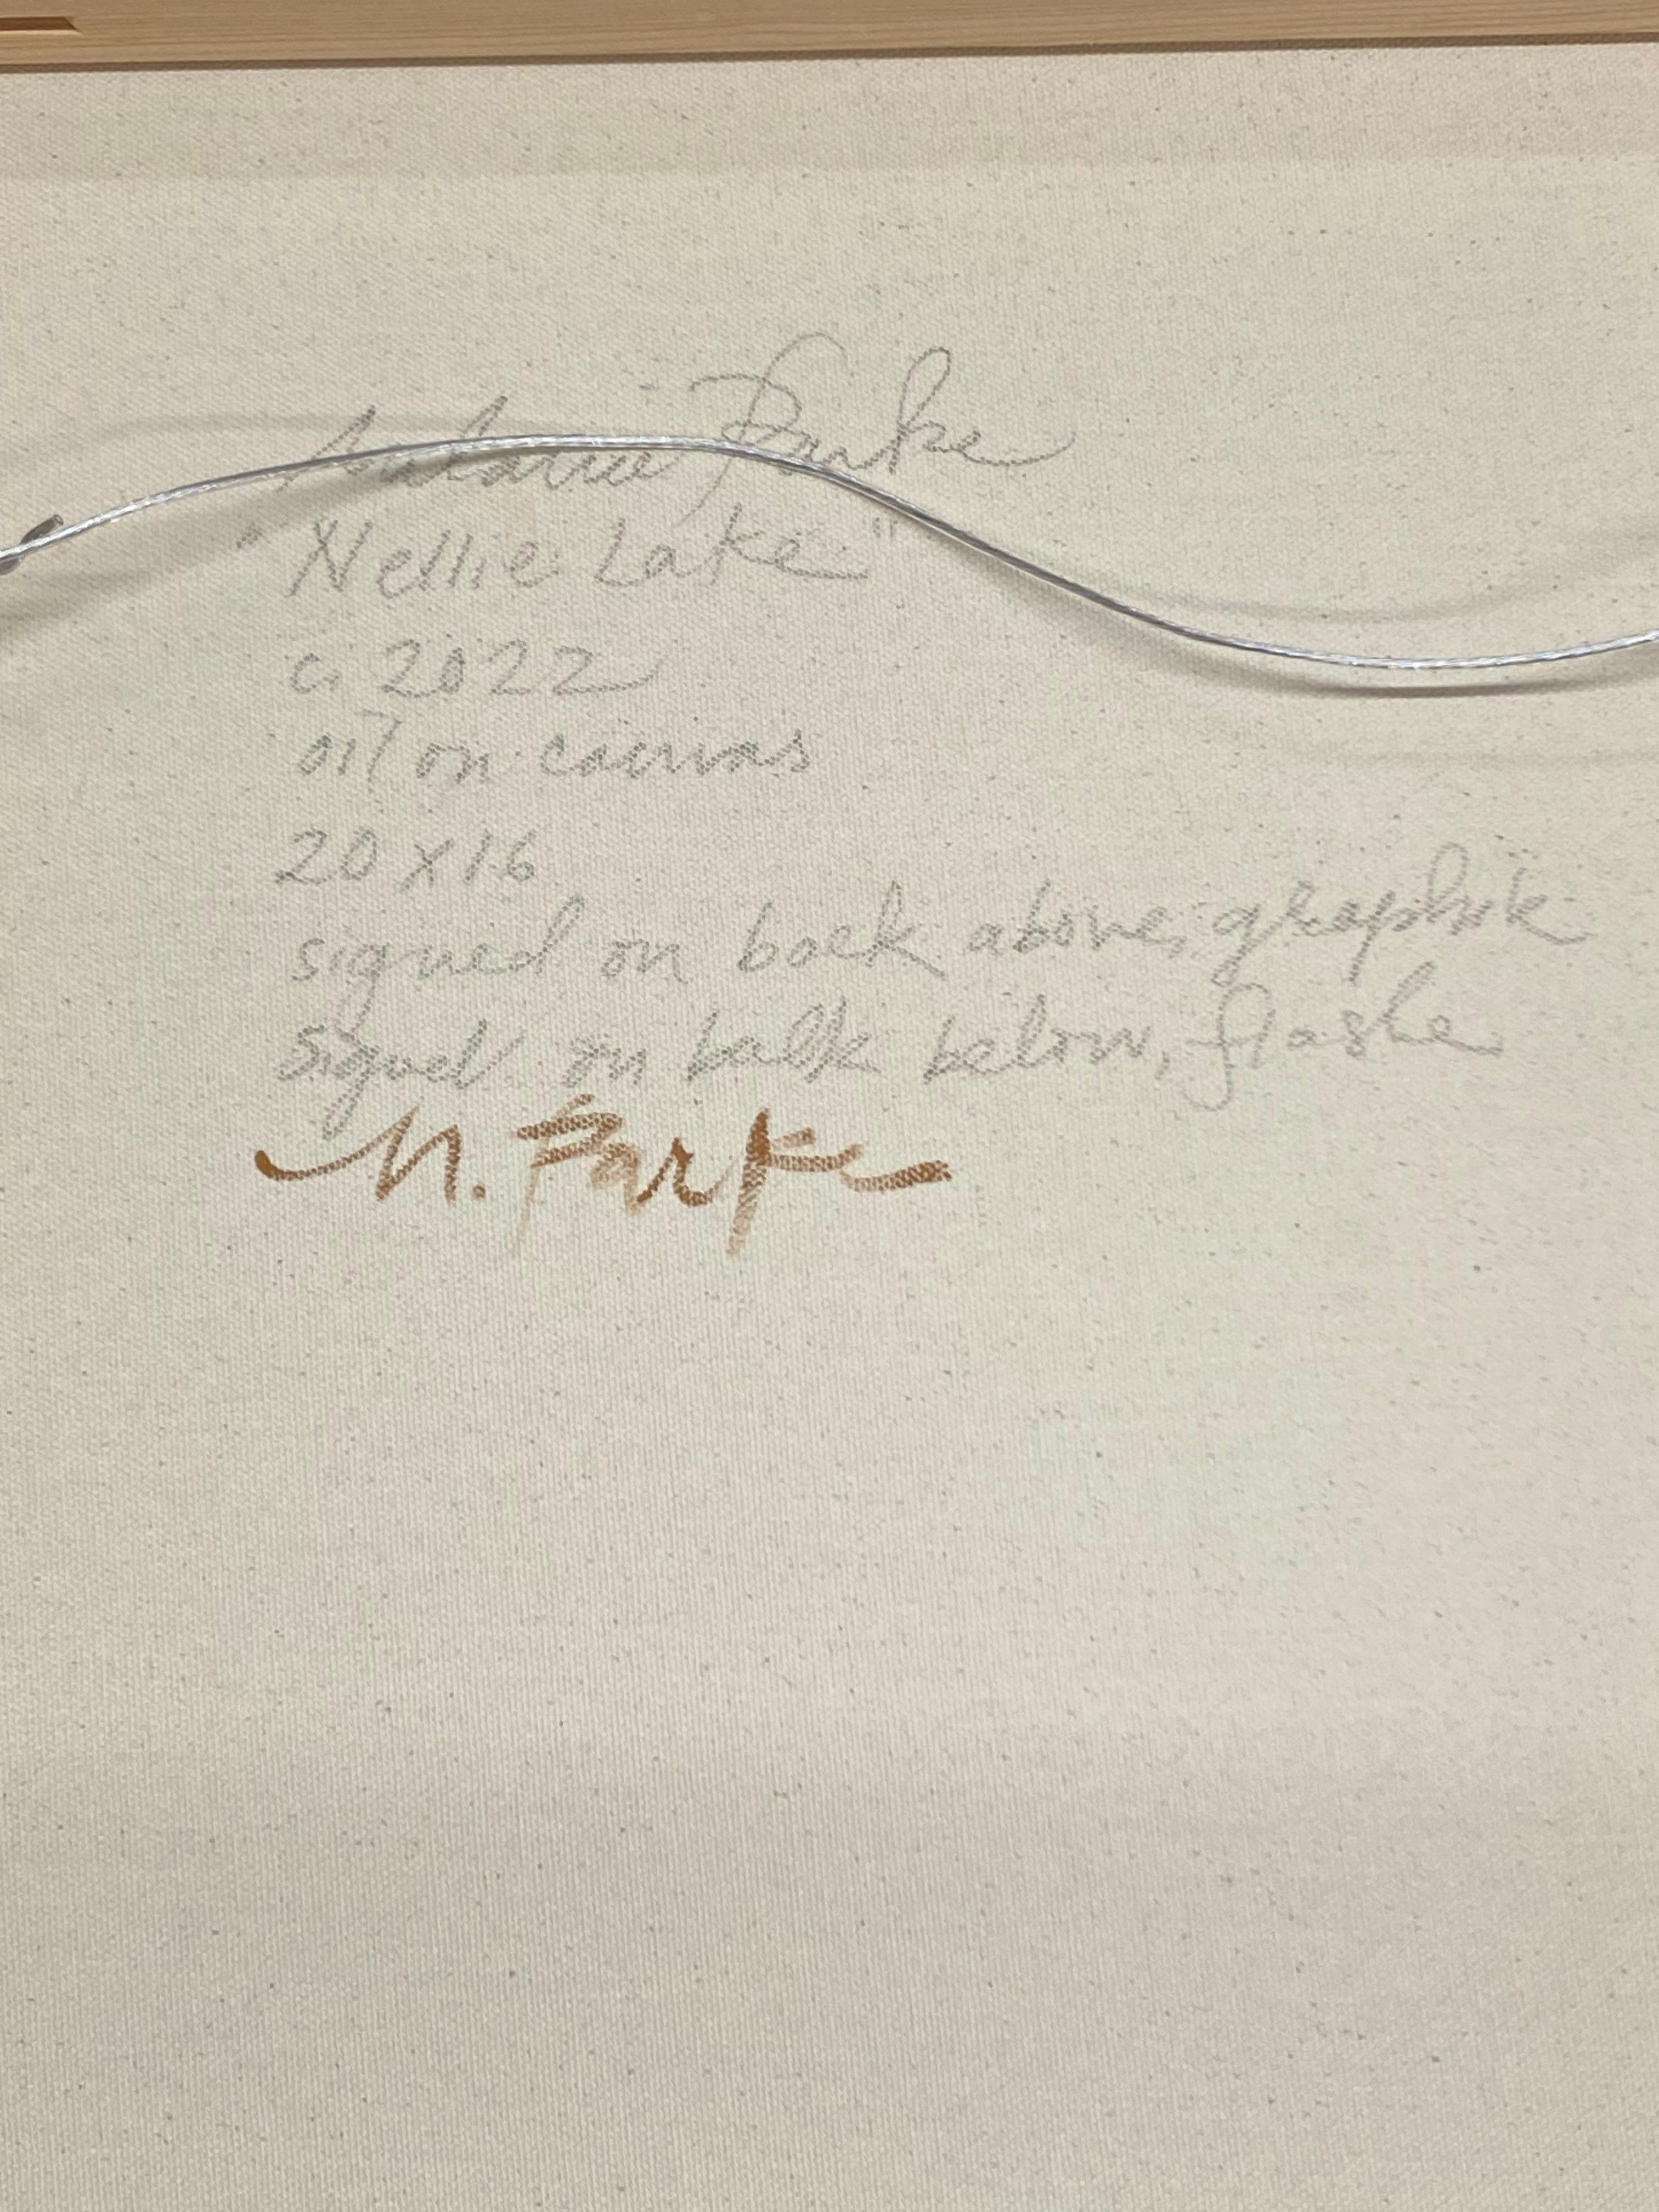 Natalie Parke
"Nellie Lake"
c. 2022
oil on canvas
20 x 16
signed on back above, graphite
signed on back below, flashe
N. Parke